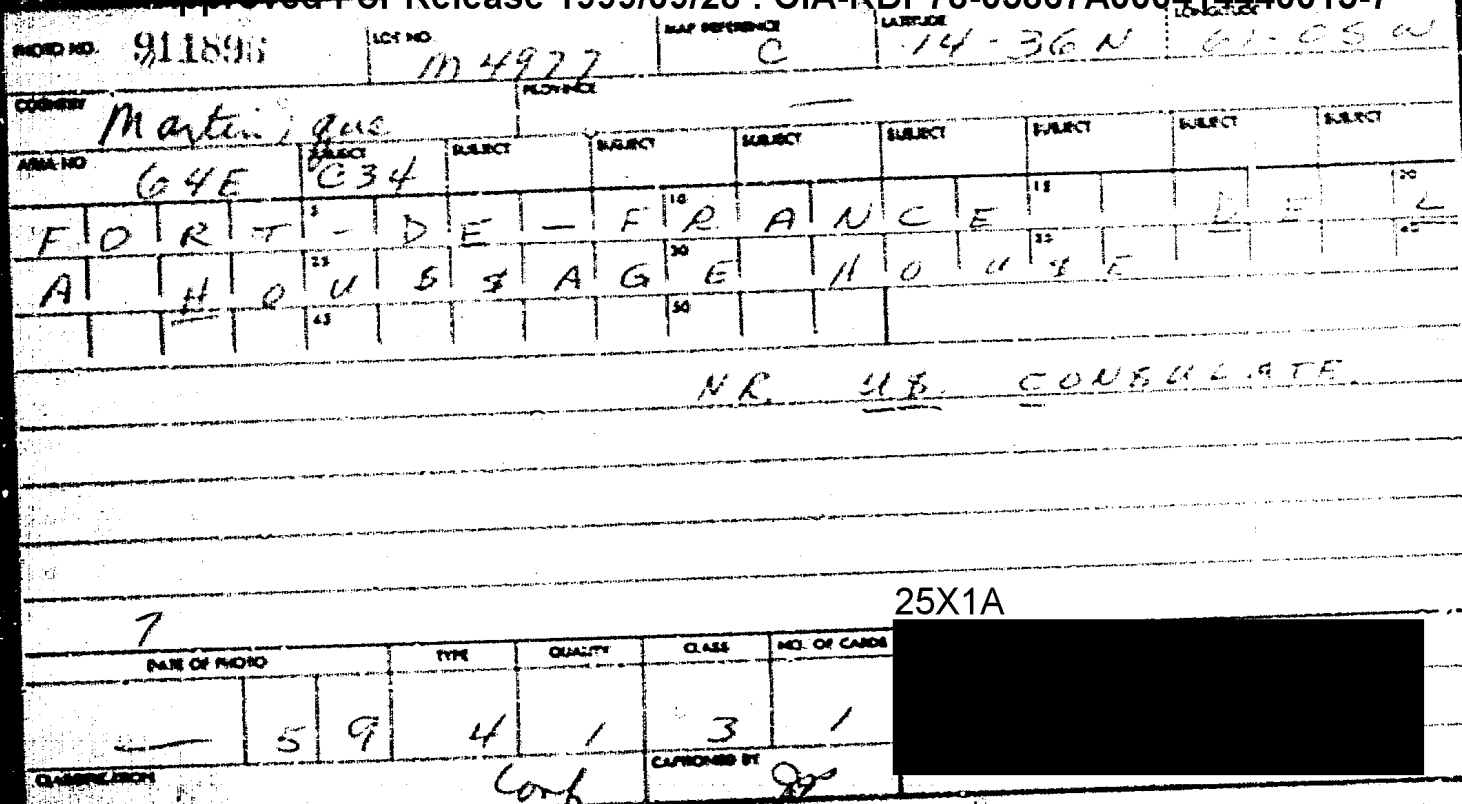 Approved For Release 1999/09/28 : CIA-RDP78-03867A000414440013-7
PHOTO NO. 911896 LOT NO. M 4977 MAP REFERENCE C LATITUDE 14-36 N LONGITUDE 61-05 W
COUNTRY Martinique PROVINCE —
AREA NO 64E SUBJECT C34 SUBJECT SUBJECT SUBJECT SUBJECT SUBJECT SUBJECT SUBJECT
FORT-DE-FRANCE DE L
A HOUSSAGE HOUSE
NR. US. CONSULATE
7
25X1A
DATE OF PHOTO TYPE QUALITY CLASS NO. OF CARDS
— 59 4 1 3 1
CLASSIFICATION Conf CAPTIONED BY